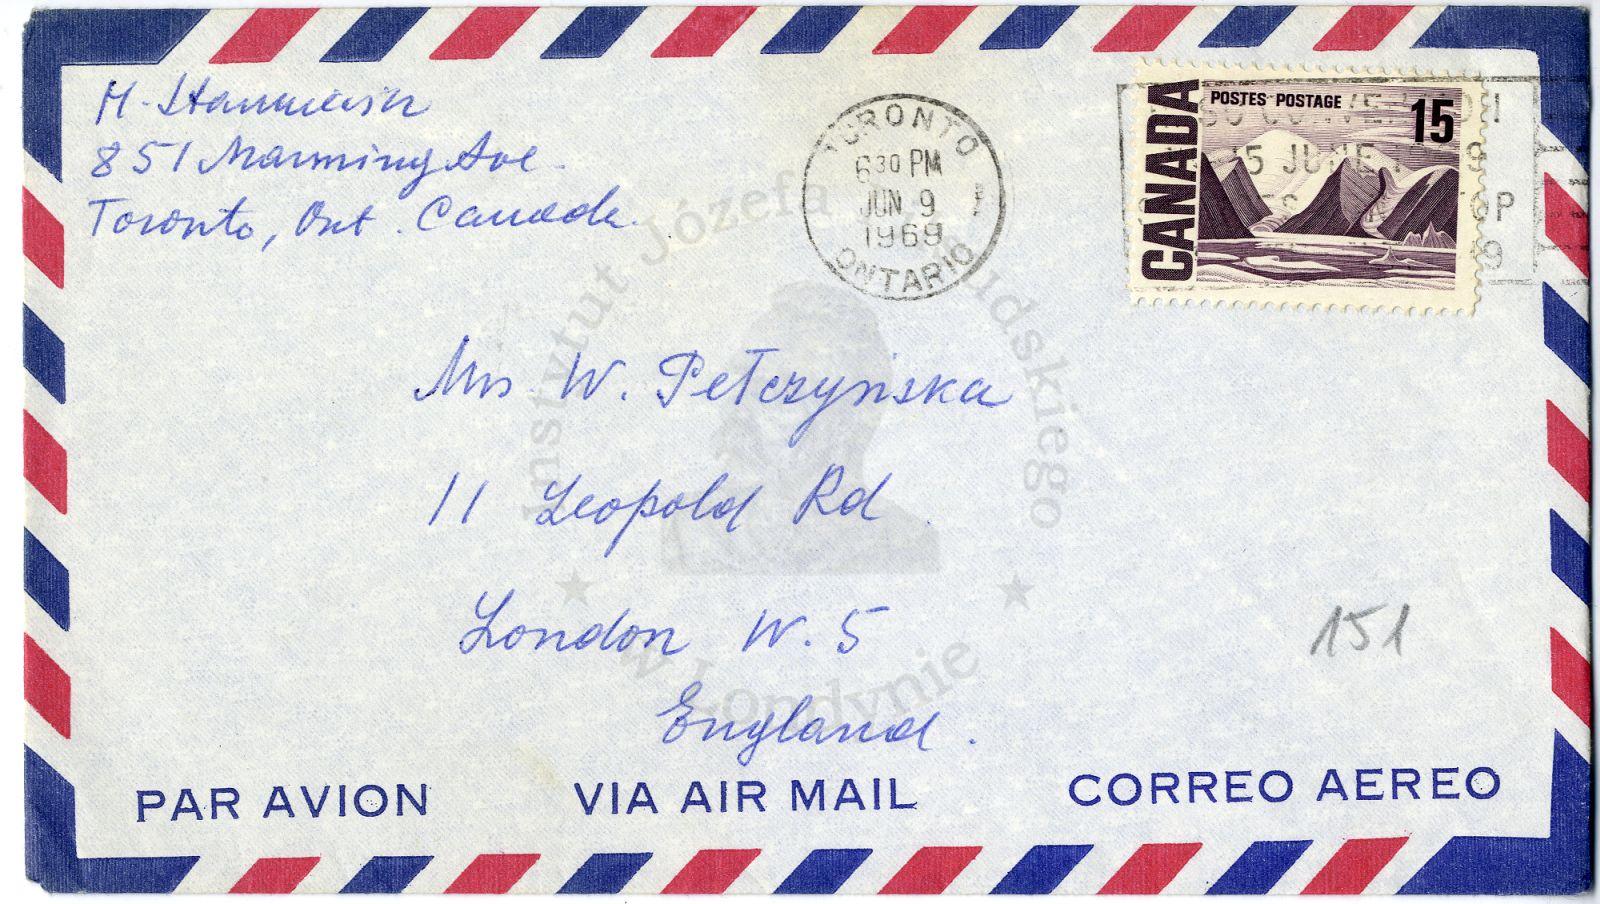 H.
851 Manning Ave.
Toronto, Ont. Canada.
TORONTO
6 30 PM
JUN 9
1969
ONTARIO
CANADA
POSTES POSTAGE
15
15 JUNE
Mrs W. Pełczyńska
11 Leopold Rd.
London W. 5
England.
151
PAR AVION VIA AIR MAIL CORREO AEREO
Instytut Józefa Piłsudskiego
w Londynie